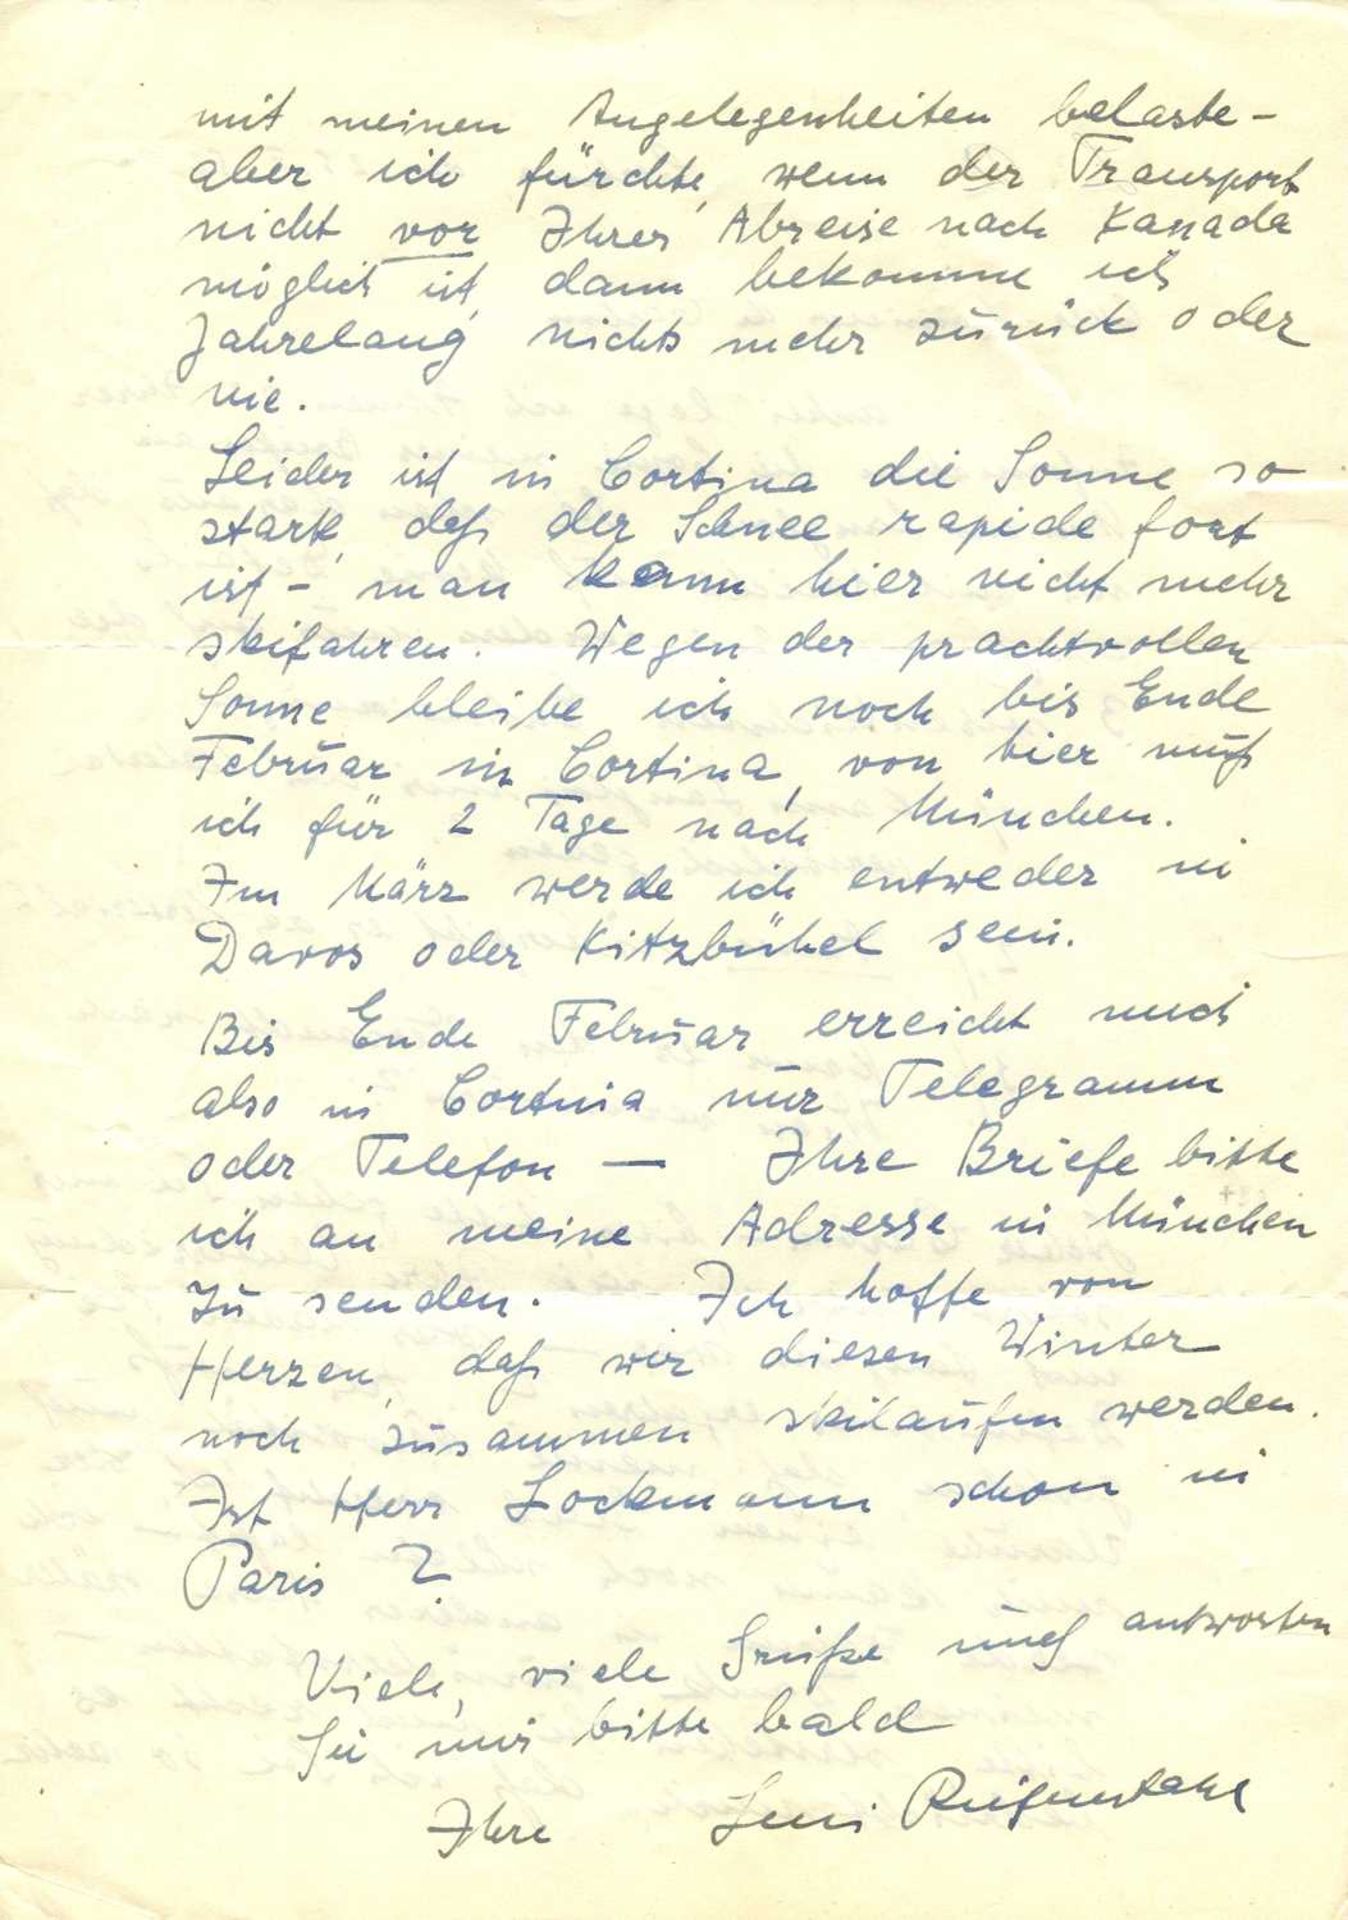 mit meinen Angelegenheiten belaste -
aber ich fürchte, wenn der Transport
nicht vor Ihrer Abreise nach Kanada
möglich ist, dann bekomme ich
Jahrelang nichts mehr zurück oder
nie.
Leider ist in Cortina die Sonne so
stark, daß der Schnee rapide fort
ist - man kann hier nicht mehr
skifahren. Wegen der prachtvollen
Sonne bleibe ich noch bis Ende
Februar in Cortina, von hier muß
ich für 2 Tage nach München.
Im März werde ich entweder in
Davos oder Kitzbühel sein.
Bis Ende Februar erreicht mich
also in Cortina nur Telegramm
oder Telefon — Ihre Briefe bitte
ich an meine Adresse in München
zu senden. Ich hoffe von
Herzen, daß wir diesen Winter
noch zusammen skilaufen werden.
Ist Herr Lockmann schon in
Paris ?
Viele, viele Grüße und antworten
Sie mir bitte bald
Ihre Leni Riefenstahl